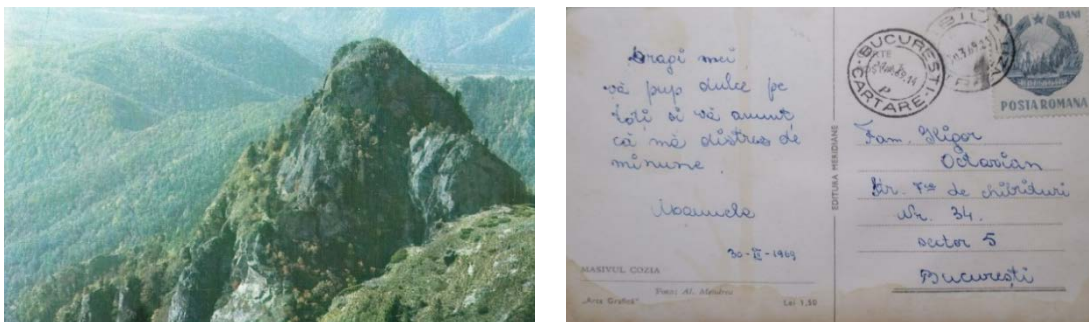 Dragi mei
vă pup dulce pe
toți si vă anunț
că mă distrez de
minune.
30-III-1969
MASIVUL COZIA
Foto: Al.
„Arta Grafică"
Lei 1,50
EDITURA MERIDIANE
BUCUREȘTI
CARTARE
BANI
POSTA ROMANA
Fam. Gligor
Octavian
Str. de chibrituri
Nr. 34.
sector 5
București